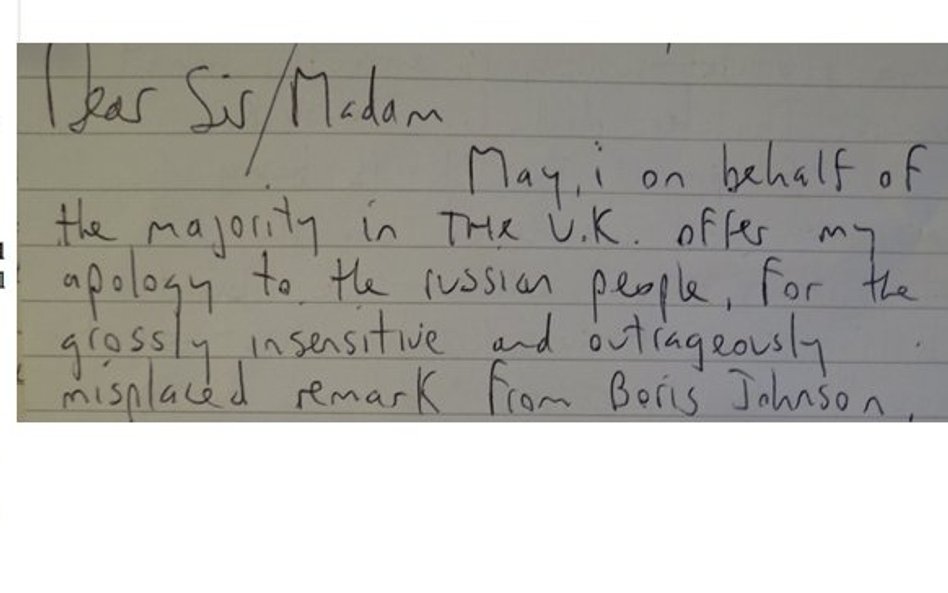 Dear Sir/Madam
May, i on behalf of
the majority in THE U.K. offer my
apology to the russian people, for the
grossly insensitive and outrageously
misplaced remark from Boris Johnson,